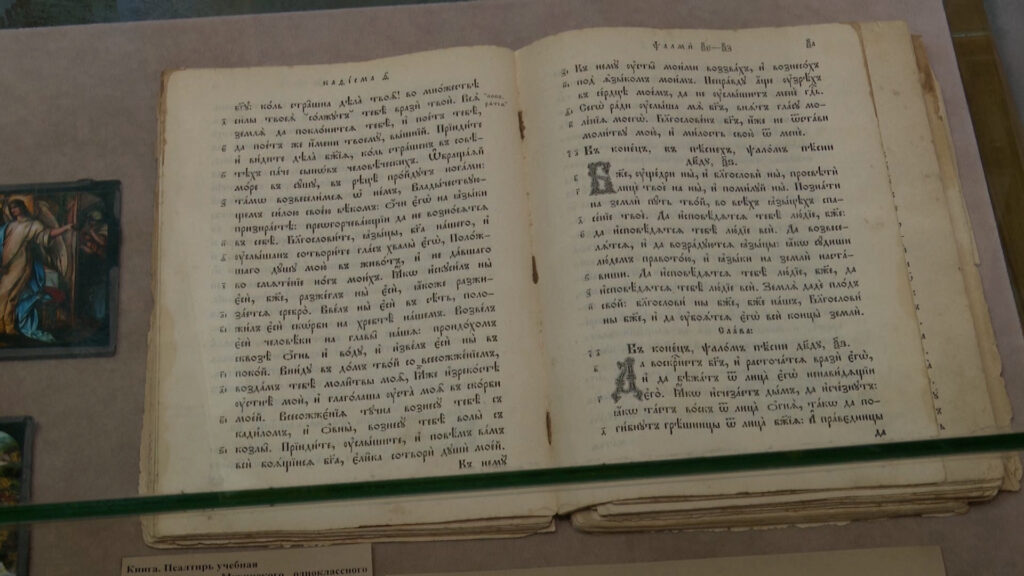 каѳісма ѳ҃
бг҃ꙋ: ко́ль стра̑шна дѣла̀ твоѧ̑! во мно́жествѣ
си́лы твоеѧ̀ со́лжꙋтъ тебѣ̀ вразѝ твоѝ. Всѧ̀
землѧ̀ да покло́нитсѧ тебѣ̀, и҆ пое́тъ тебѣ̀,
да пое́тъ же и҆́мени твоемꙋ̀, вы́шнїй. Прїиди́те
и҆ ви́дите дѣла̀ бж҃їѧ, ко́ль стра́шенъ въ совѣ́-
тѣхъ па́че сынѡ́въ человѣ́ческихъ. Ѡ҆браща́ѧй
мо́ре въ сꙋ́шꙋ, въ рѣцѣ̀ про́йдꙋтъ нога́ми:
та́мѡ возвесели́мсѧ ѡ҆ не́мъ, Влады́чествꙋю-
щемъ си́лою свое́ю вѣ́комъ: Ѻ҆́чи є҆гѡ̀ на ꙗ҆зы́ки
призира́етѣ: преѡгорчева́ющїи да не возно́сѧтсѧ
въ себѣ̀. Благослови́те, ꙗ҆зы́цы, бг҃а на́шего, и҆
ᲂу҆слы́шанъ сотвори́те гла́съ хвалы̀ є҆гѡ̀, Поло́ж-
шагѡ дꙋ́шꙋ мою̀ въ живо́тъ, и҆ не да́вшаго
во смѧте́нїе но́гъ мои́хъ. Ꙗ҆́кѡ и҆скꙋси́лъ ны̀
є҆сѝ, бж҃е, разже́глъ ны̀ є҆сѝ, ꙗ҆́коже разжи-
за́етсѧ сребро̀. Вве́лъ ны̀ є҆сѝ въ сѣ́ть, поло-
жи́лъ є҆сѝ скѡ́рби на хребтѣ̀ на́шемъ. Возве́лъ
є҆сѝ человѣ́ки на главы̑ на́шѧ: проидо́хомъ
сквозѣ̀ ѻ҆́гнь и҆ во́дꙋ, и҆ и҆зве́лъ є҆сѝ ны̀ въ
поко́й. Вни́дꙋ въ до́мъ тво́й со всесожже́нїемъ,
возда́мъ тебѣ̀ моли̑твы моѧ̑, Ꙗ҆̀же и҆зреко́стѣ
ᲂу҆стнѣ̀ моѝ, и҆ глаго́лаша ᲂу҆ста̀ моѧ̑ въ ско́рби
мое́й. Всесожжє́нїѧ тꙋ̑чна вознесꙋ̀ тебѣ̀ съ
кади́ломъ, и҆ ѻ҆вны̀, вознесꙋ̀ тебѣ̀ волы̀ съ
козлы̀. Прїиди́те, ᲂу҆слы́шите, и҆ повѣ́мъ ва́мъ
всѝ боѧ́щїисѧ бг҃а, є҆ли̑ка сотворѝ дꙋшѝ мое́й.
Къ немꙋ̀
Ѱалмы̀ ѯ҃е—ѯ҃з
Къ немꙋ̀ ᲂу҆сты̑ мои́ми воззва́хъ, и҆ вознесо́хъ
под̾ ѧ҆зы́комъ мои́мъ. Непра́вдꙋ а҆́ще ᲂу҆зрѣ́хъ
въ се́рдцѣ мое́мъ, да не ᲂу҆слы́шитъ менѐ гдⷭ҇ь.
Сегѡ̀ ра́ди ᲂу҆слы́ша мѧ̀ бг҃ъ, внѧ́тъ гла́сꙋ мо-
ле́нїѧ моегѡ̀. Благослове́нъ бг҃ъ, и҆́же не ѿста́ви
моли́твꙋ мою̀, и҆ ми́лость свою̀ ѿ менѐ.
Въ коне́цъ, въ пѣ́снехъ, ѱало́мъ пѣ́сни
дв҃дꙋ, ѯ҃ѕ.
Бж҃е, ᲂу҆ще́дри ны̀, и҆ благословѝ ны̀, просвѣтѝ
лицѐ твоѐ на ны̀, и҆ поми́лꙋй ны̀. Позна́ти
на землѝ пꙋ́ть тво́й, во всѣ́хъ ꙗ҆зы́цѣхъ спа-
се́нїе твоѐ. Да и҆сповѣ́дѧтсѧ тебѣ̀ лю́дїе, бж҃е:
да и҆сповѣ́дѧтсѧ тебѣ̀ лю́дїе всѝ. Да возвесе-
лѧ́тсѧ, и҆ да возра́дꙋютсѧ ꙗ҆зы́цы: ꙗ҆́кѡ сꙋ́диши
лю́демъ правото́ю, и҆ ꙗ҆зы́ки на землѝ наста́-
виши. Да и҆сповѣ́дѧтсѧ тебѣ̀ лю́дїе, бж҃е, да
и҆сповѣ́дѧтсѧ тебѣ̀ лю́дїе всѝ. Землѧ̀ дадѐ пло́дъ
сво́й: благословѝ ны̀ бж҃е, бж҃е на́шъ, Благословѝ
ны̀ бж҃е, и҆ да ᲂу҆боѧ́тсѧ є҆гѡ̀ всѝ концы̀ землѝ.
Сла́ва:
Въ коне́цъ, ѱало́мъ пѣ́сни дв҃дꙋ, ѯ҃з.
Да воскрⷭ҇нетъ бг҃ъ, и҆ расточа́тсѧ вразѝ є҆гѡ̀,
и҆ да бѣжа́тъ ѿ лица̀ є҆гѡ̀ ненави́дѧщїи
є҆го̀. Ꙗ҆́кѡ и҆счеза́етъ ды́мъ, да и҆сче́знꙋтъ:
ꙗ҆́кѡ та́етъ во́скъ ѿ лица̀ ѻ҆гнѧ̀, та́кѡ да по-
ги́бнꙋтъ грѣ̑шницы ѿ лица̀ бж҃їѧ: А҆ пра́вєдницы
да
Книга. Псалтирь учебная
одноклассного